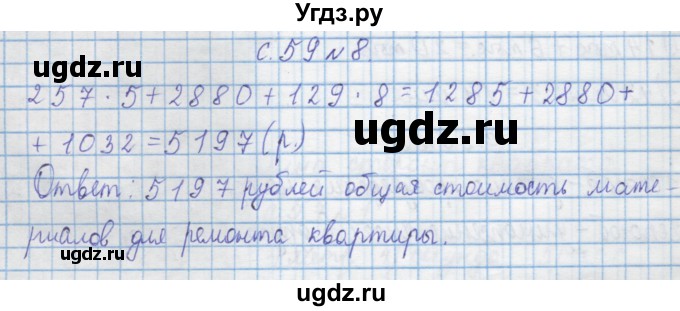 Угдз.ру
с. 59 № 8.
ugdz.ru
ugdz.ru
257 · 5 + 2880 + 129 · 8 = 1285 + 2880 +
ugdz.ru
+ 1032 = 5197 (р.)
Ответ: 5197 рублей общая стоимость мате-
риалов для ремонта квартиры.
ugdz.ru
ugdz.ru
ugdz.ru